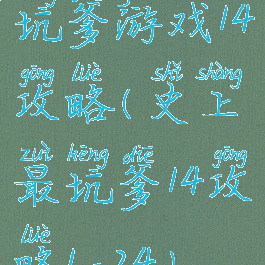 坑爹游戏14
gōng lüè shǐ shàng
攻略(史上
zuì kēng diē gōng
最坑爹14攻
lüè
略1-24)